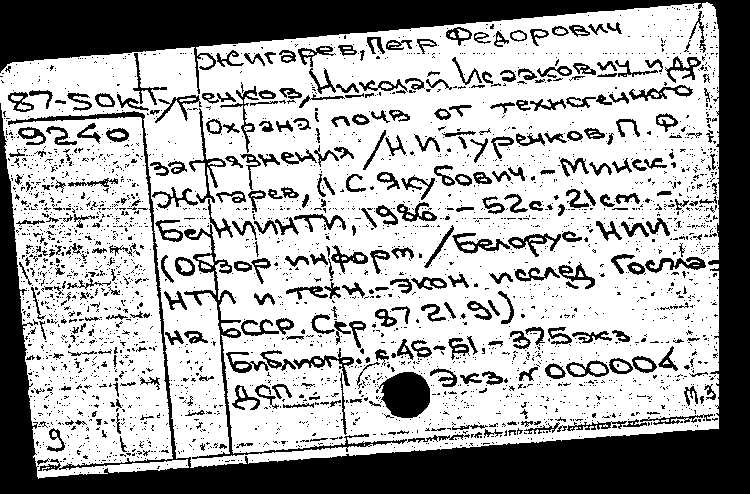 Жигарев, Петр Федорович
87-50к Туренков, Николай Исаакович и др
9240 Охрана почв от техногенного
загрязнения / Н.И. Туренков, П.Ф.
Жигарев, Л.С. Якубович. - Минск:
БелНИИНТИ, 1986. - 52с.; 21 см. -
(Обзор. информ. / Белорус. НИИ
НТИ и техн.-экон. исслед. Госпла-
на БССР. Сер. 87.21.91).
Библиогр.: с. 45-51. - 375 экз
ДСП. Экз. № 000004.
М, З
9